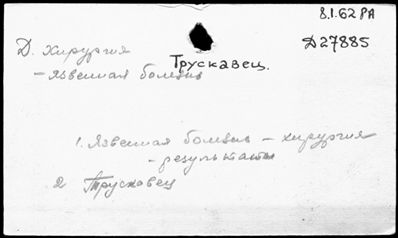 8.1.62 РА
Д27885
Д. Хирургия
Трускавец.
– Язвенная болезнь
1. Язвенная болезнь – хирургия
– результаты
2 Трускавец